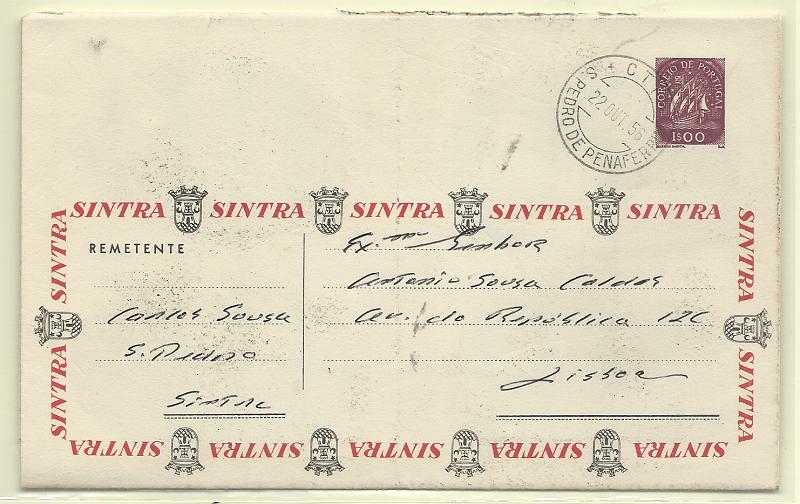 CORREIO DE PORTUGAL
1$00
CTT
S. PEDRO DE PENAFERRIM
22 OUT. 56
SINTRA SINTRA SINTRA SINTRA
SINTRA
SINTRA
REMETENTE
Carlos Sousa
S. Pedro
Sintra
Ex.mº Senhor
Antonio Sousa Caldas
Av. da República 12C
Lisboa
SINTRA
SINTRA
SINTRA SINTRA SINTRA SINTRA SINTRA